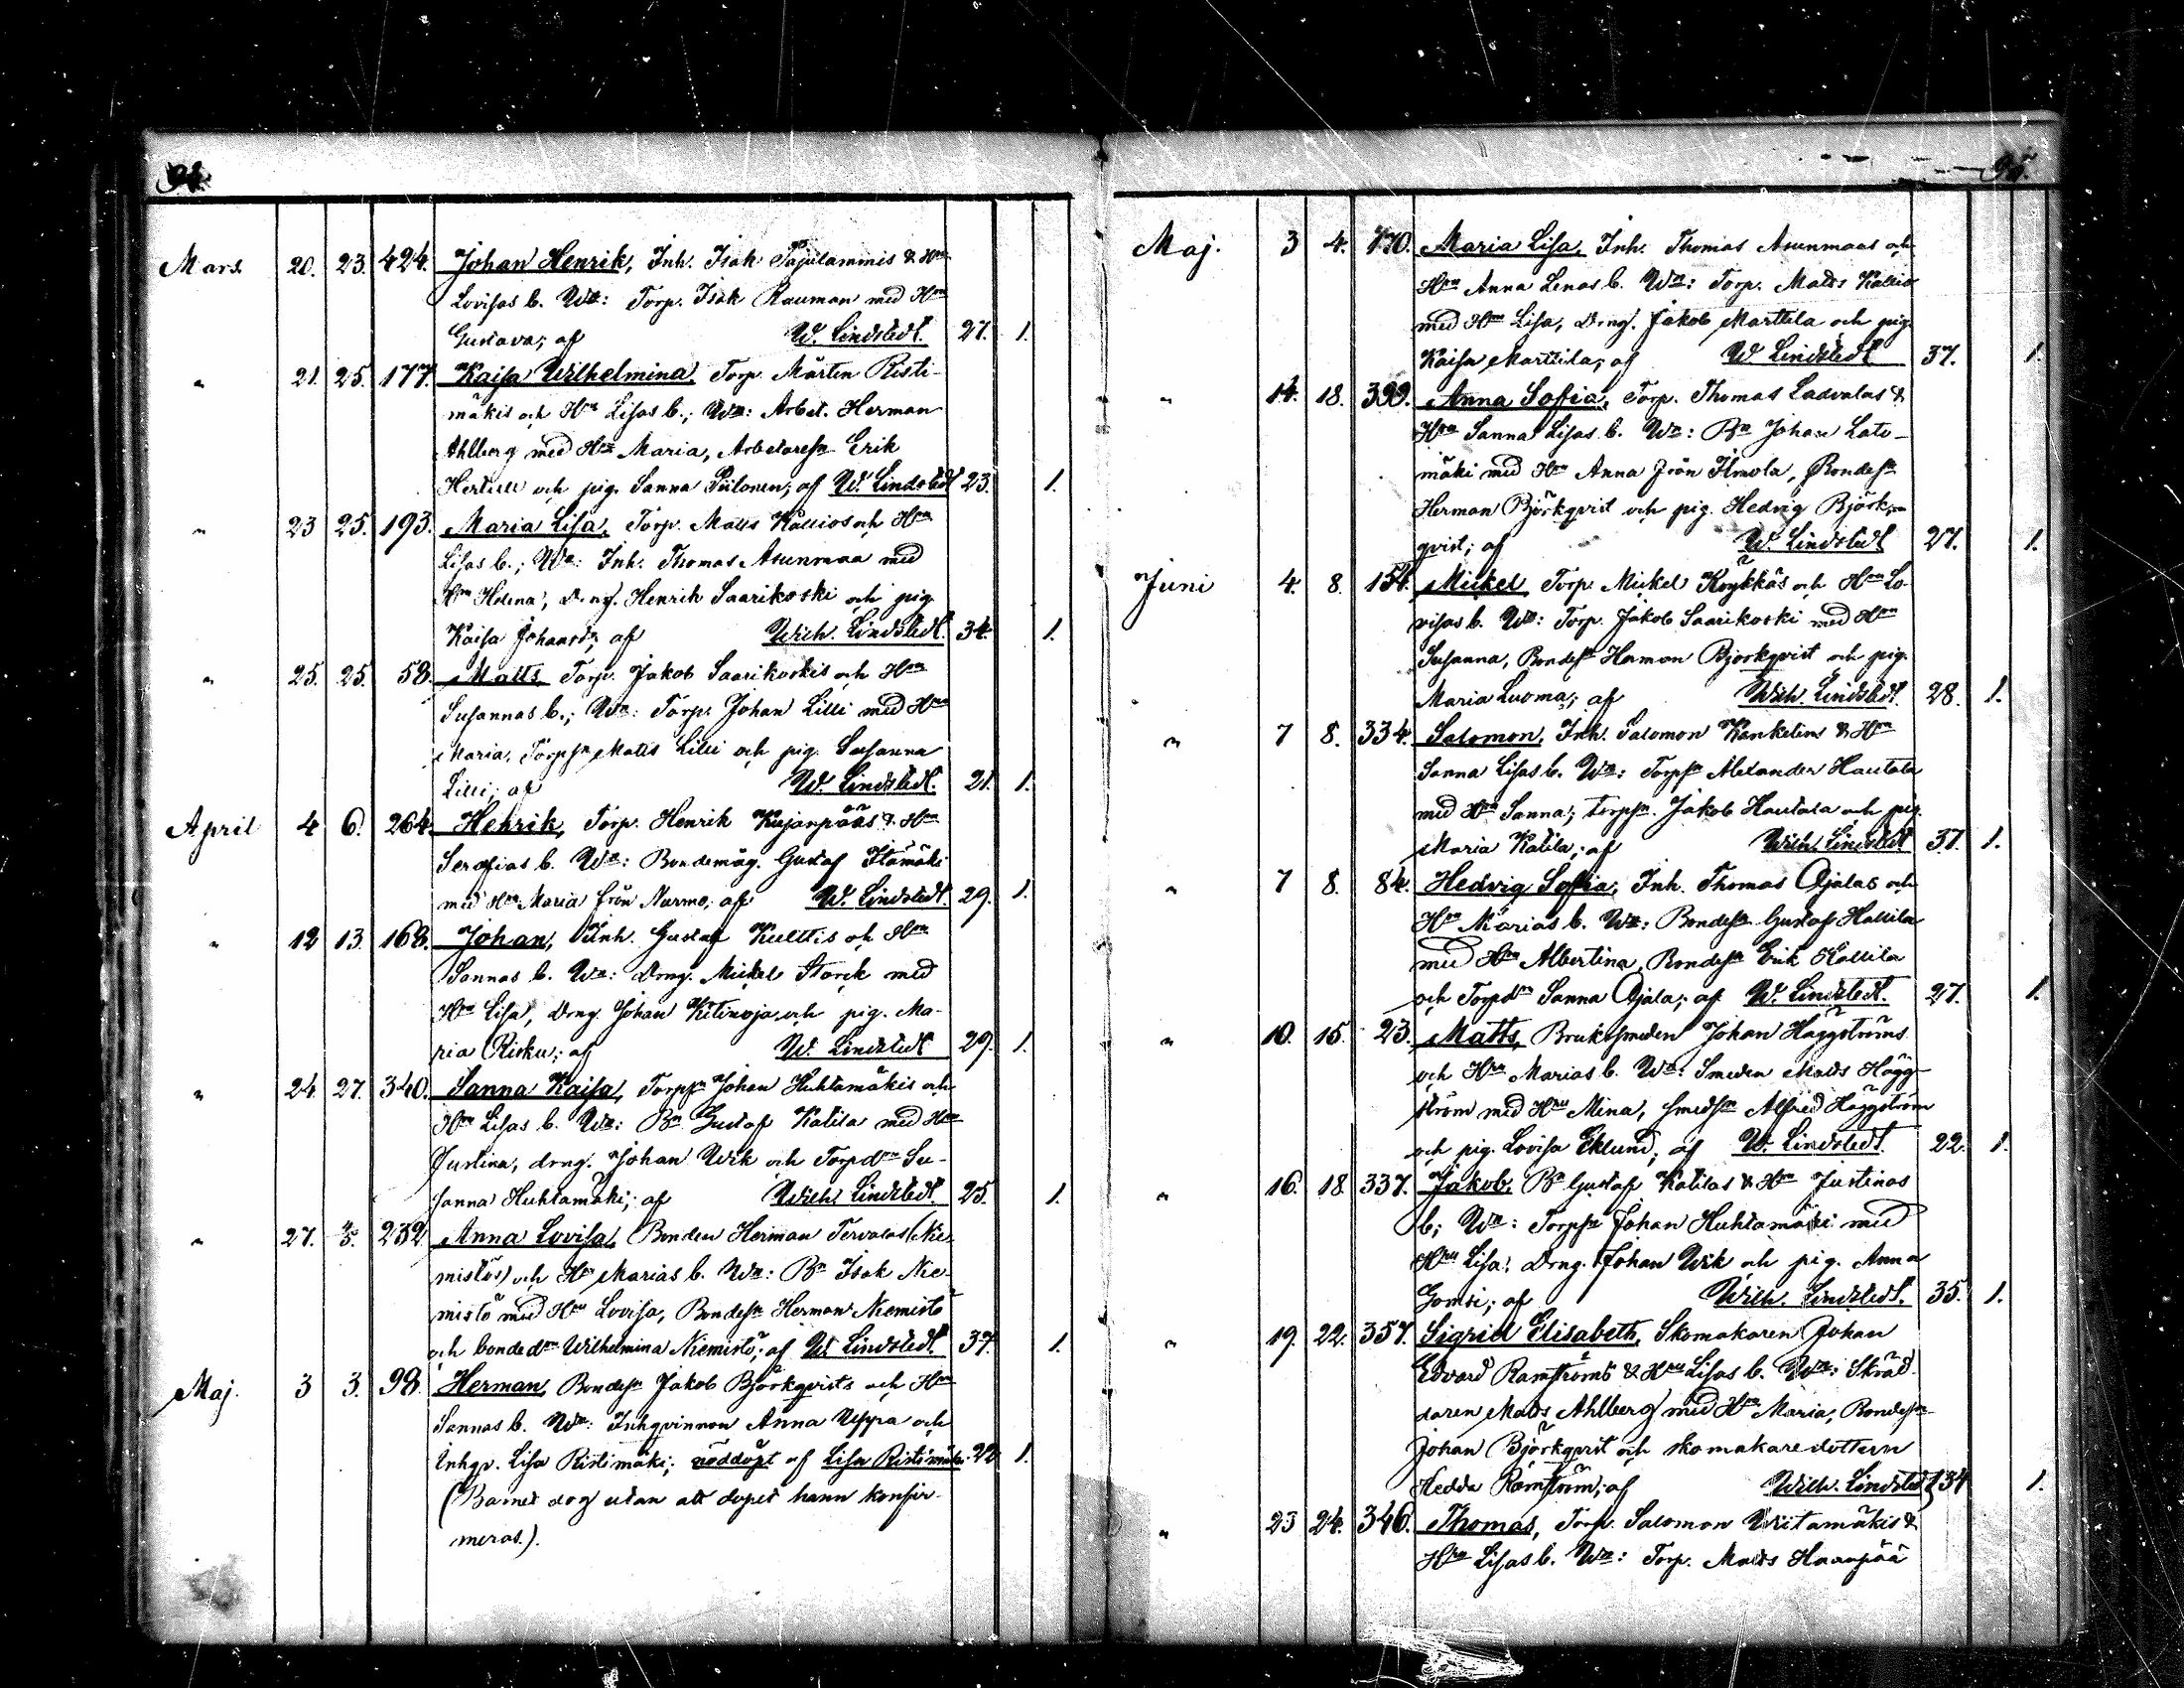 94.
Mars. 20. 23. 424. Johan Henrik, Inh. Isak Pajulammis & Hu
Lovisas b. Wn: Torp. Isak Rauman med Hu
Gustava; af W. Lindstedt. 27. 1.
" 21. 25. 177. Kajsa Wilhelmina, Torp. Mårten Risti-
mäkis och Hu Lisas b.; Wn: Arbet. Herman
Ahlberg med Hu Maria, Arbetaresn Erik
och pig. Sanna Piilonen; af W. Lindstedt 23. 1.
" 23 25. 193. Maria Lisa, Torp. Matts Kallios och Hu
Lisas b.; Wn: Inh. Thomas Asunmaa med
Hu Helena, Dreng. Henrik Saarikoski och pig
Kaisa af Wilh. Lindstedt. 34. 1.
" 25. 25. 58. Matts, Torp. Jakob Saarikoskis och Hu
Susannas b.; Wn: Torp. Johan Lilli med Hu
Maria, Torpsn Matts Lilli och pig. Susanna
Lilli; af W. Lindstedt. 21. 1.
April 4 6. 264. Henrik, Torp. Henrik Kujanpääs & Hu
Serafias b. Wn: Bondemåg. Gustaf Itämäki
med Hu Maria från Nurmo; af W. Lindstedt. 29. 1.
" 12 13. 168. Johan, Inh. Gustaf Kulttis och Hu
Sannas b. Wn: Dreng. Mickel Storck med
Hu Lisa, Dreng. Johan Kitinoja och pig. Ma-
ria Risku; af W. Lindstedt 29. 1.
" 24. 27. 340. Sanna Kaisa, Torpsn Johan Huhtamäkis och
Hu Lisas b. Wn: Bn Gustaf Katila med Hu
Justina, dreng. Johan Wik och Torpdn Su-
sanna Huhtamäki; af Wilh. Lindstedt. 25. 1.
" 27. 232. Anna Lovisa, Bonden Herman Tervalas (Nie-
mistös) och Hu Marias b. Wn: Bn Isak Nie-
mistö med Hu Lovisa, Bondesn Herman Niemistö
och bondedn Wilhelmina Niemistö; af W. Lindstedt 37. 1.
Maj. 3 3. 98. Herman, Bondesn Jakob Björkqvists och Hu
Sannas b. Wn: Inhqvinnon Anna Uppa och
Inhqv. Lisa Ristimäki; nöddöpt af Lisa Ristimäki. 22 1.
(Barnet dog utan att dopet hann konfir-
meras.).
95.
Maj. 3 4. 170. Maria Lisa, Inh. Thomas Asunmaas och
Hu Anna Lenas b. Wn: Torp. Matts Kallio
med Hu Lisa, Dreng. Jakob Marttila och pig.
Kaisa Marttila; af W Lindstedt 37. 1.
" 14. 18. 399. Anna Sofia, Torp. Thomas Ladvalas &
Hu Sanna Lisas b. Wn: Bn Johan Lato-
mäki med Hu Anna från Ilmola, Bondesn
Herman Björkqvist och pig. Hedvig Björk-
qvist; af W. Lindstedt 27. 1.
Juni 4. 8. 154. Mickel, Torp. Mickel Köykkäs och Hu Lo-
visas b. Wn: Torp. Jakob Saarikoski med Hu
Susanna, Bondesn Herman Björkqvist och pig.
Maria Luoma; af Wilh. Lindstedt. 28. 1.
" 7 8. 334. Salomon, Inh. Salomon Kankelins & Hu
Sanna Lisas b. Wn: Torpsn Alexander Hautala
med Hu Sanna; torpsn. Jakob Hautala och pig.
Maria Katila; af Wilh. Lindstedt 37. 1.
" 7 8. 84. Hedvig Sofia, Inh. Thomas Ojalas och
Hu Marias b. Wn: Bondesn Gustaf Hallila
med Hu Albertina, Bondesn Erik Hallila
och Torpdn Sanna Ojala; af W. Lindstedt. 27. 1.
" 10. 15. 23. Matts, Bruksmeden Johan Häggströms
och Hu Marias b. Wn: Smeden Matts Hägg-
ström med Hu Mina, smedsn Alfred Häggström
och pig. Lovisa Eklund; af W. Lindstedt. 22. 1.
" 16. 18. 337. Jakob, Bn Gustaf Katilas & Hu Justinas
b; Wn: Torpsn Johan Huhtamäki med
Hu Lisa, Dreng. Johan Wik och pig. Anna
Gomsi; af Wilh. Lindstedt. 35. 1.
" 19. 22. 357. Sigrid Elisabeth, Skomakaren Johan
Edvard Ramströms & Hu Lisas b. Wn: Skräd-
daren Matts Ahlberg med Hu Maria, Bondesn
Johan Björkqvist och skomakaredottern
Hedda Ramström; af Wilh. Lindstedt 34 1.
" 23 24. 346. Thomas, Torp. Salomon Wiitamäkis &
Hu Lisas b. Wn: Torp. Matts Haanpää